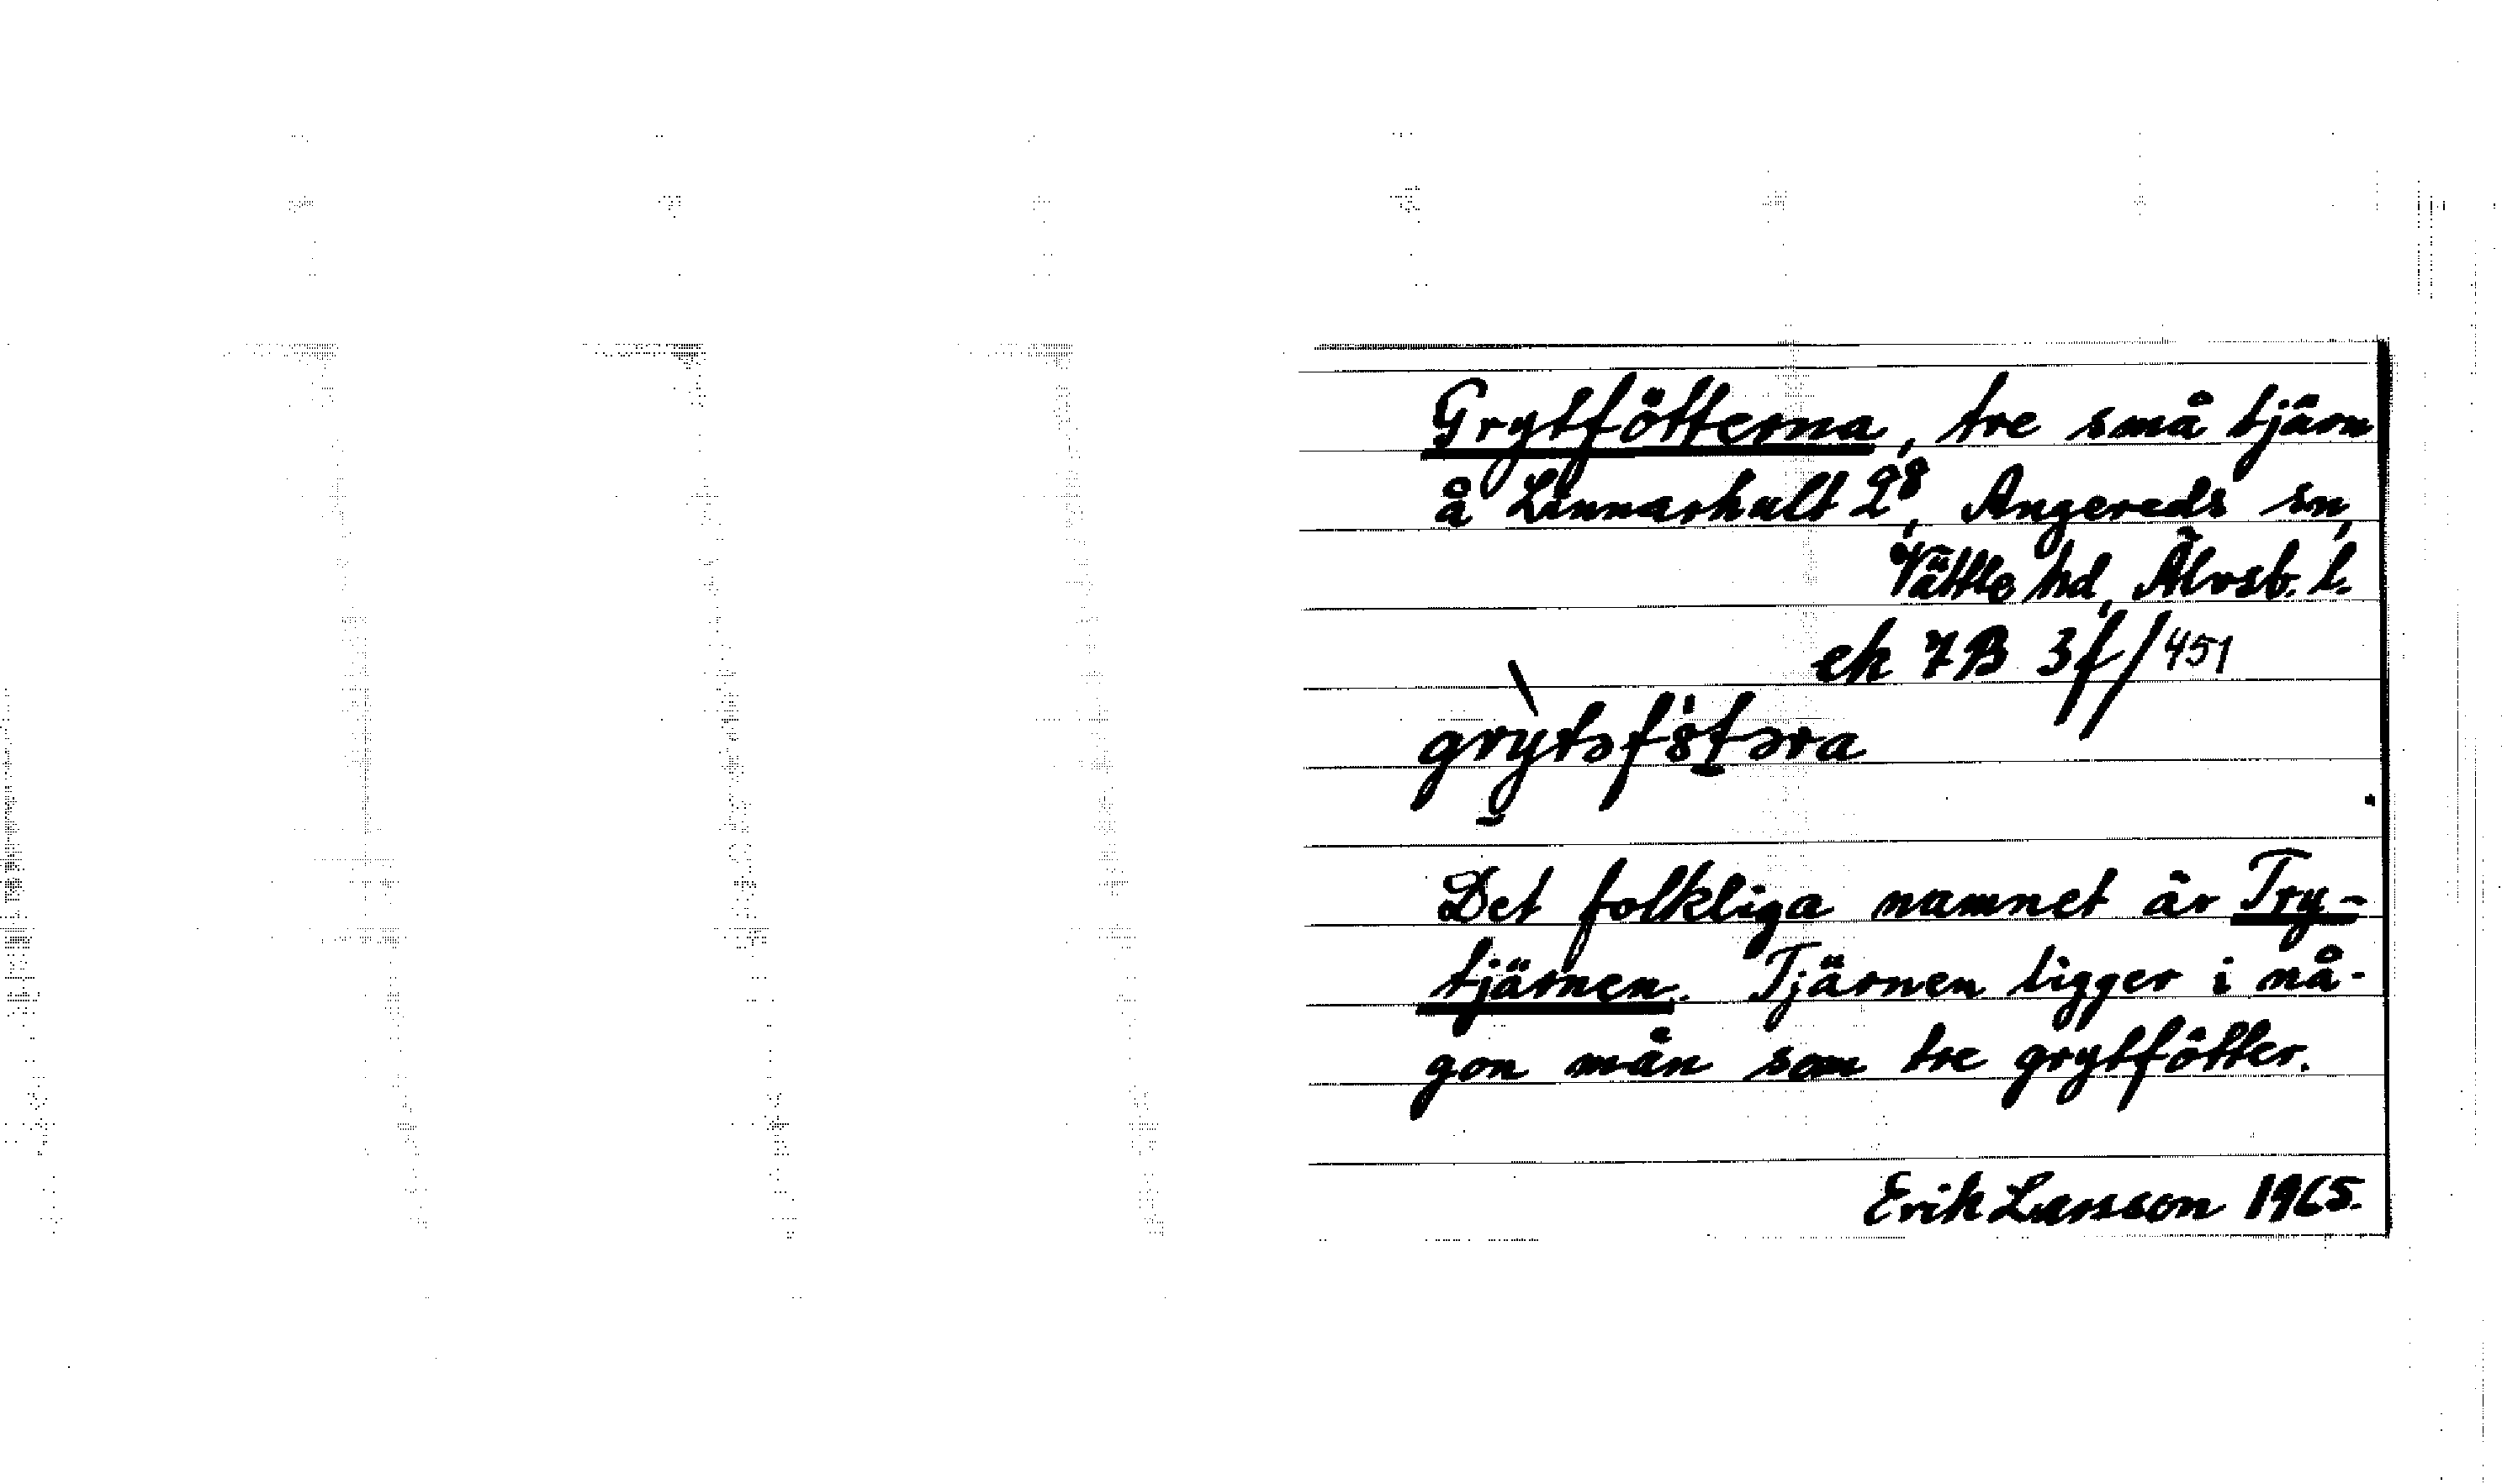 Grytfötterna, tre små tjärn
å Linnarhult 2⁸, Angereds sn,
Vättle hd, Älvsb. l.
ek 7B 3f/451
Det folkliga namnet är Try-
tjärnen. Tjärnen ligger i nå-
gon mån som tre grytfötter.
Erik Larsson 1965.